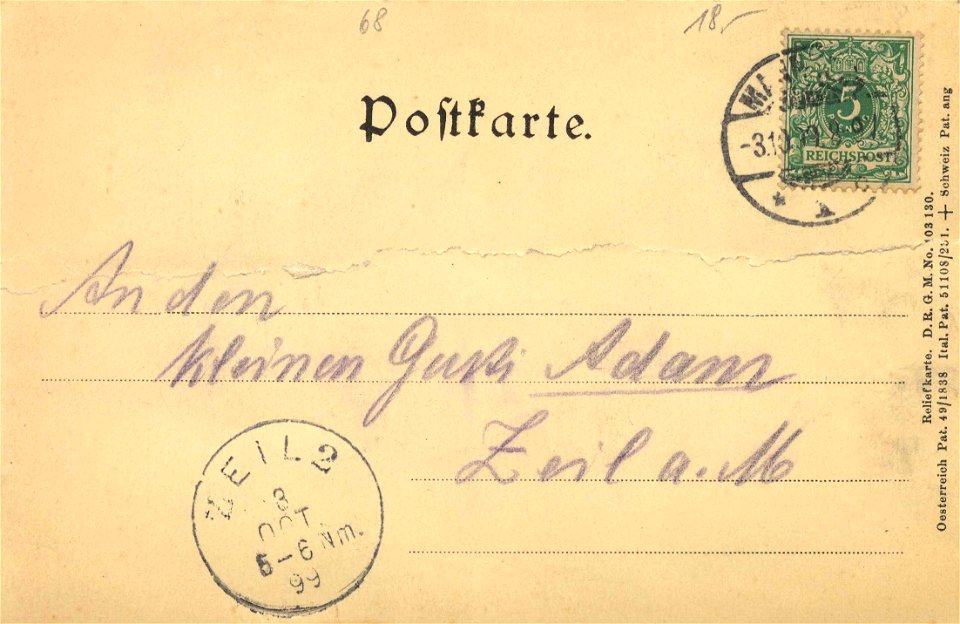 68
18,-
Postkarte.
5
REICHSPOST
-3.10.99.8-9
An den
kleinen Gusti Adam
Zeil a. M
ZEIL 2
3
OCT.
5-6 Nm.
99
Reliefkarte. D. R. G. M. No. 103 130.
Oesterreich Pat. 49/1838 Ital. Pat. 51108/201. + Schweiz Pat. ang